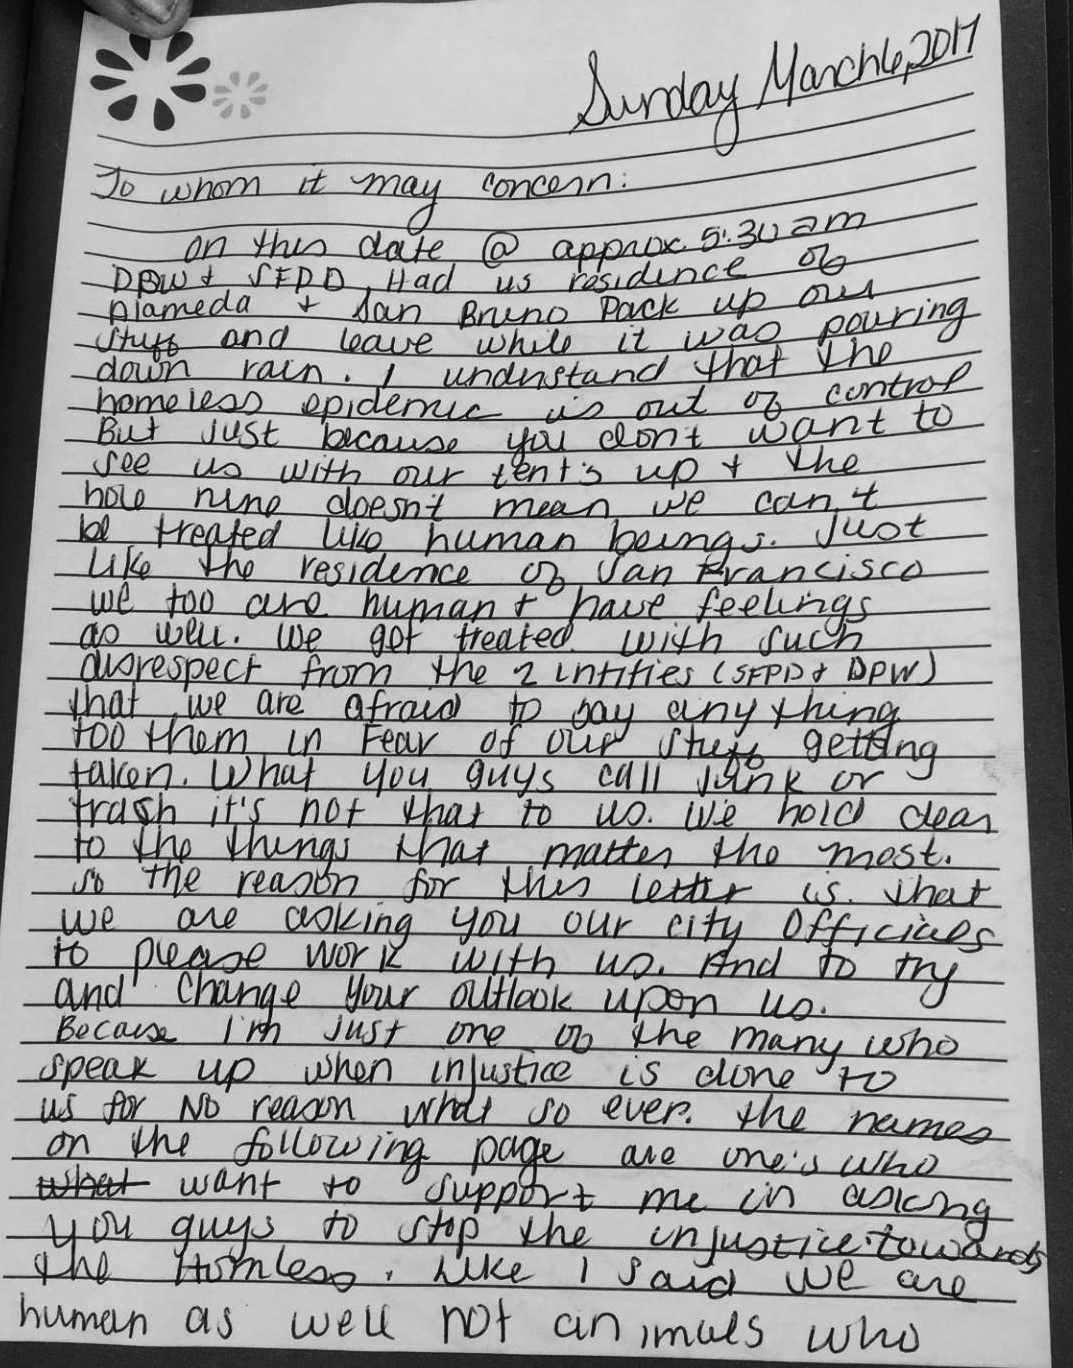 Sunday March 6, 2017
To whom it may concern:
on this date @ approx. 5:30 am
DPW + SFPD, Had us residence of
Alameda + San Bruno Pack up our
stuff and leave while it was pouring
down rain. I understand that the
homeless epidemic is out of control
But just because you don't want to
see us with our tent's up + the
hole nine doesn't mean we can't
be treated like human beings. Just
like the residence of San Francisco
we too are human + have feelings
as well. We got treated with such
disrespect from the 2 entities (SFPD + DPW)
that we are afraid to say anything
too them in Fear of our stuff getting
taken. What you guys call junk or
trash it's not that to us. We hold dear
to the things that matter the most.
so the reason for this letter is that
we are asking you our city Officials
to please work with us. And to try
and change your outlook upon us.
Because I'm just one of the many who
speak up when injustice is done to
us for No reason what so ever. the names
on the following page are one's who
what want to support me in asking
you guys to stop the injustice towards
the Homless. Like I said we are
human as well not animals who